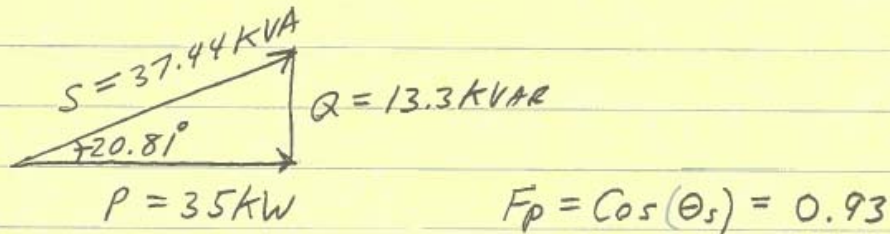 S = 37.44 KVA
Q = 13.3 KVAR
20.81°
P = 35KW
Fp = Cos(θs) = 0.93